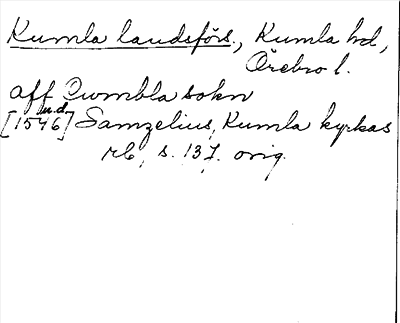 Kumla landsförs., Kumla hd,
Örebro l.
aff Cwmbla sokn
[1546] u.d. Samzelius, Kumla kyrkas
rb, s. 137. orig.